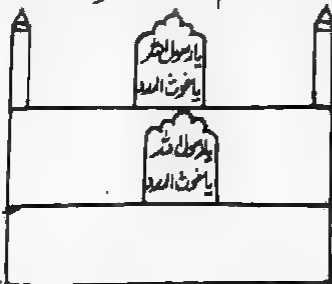 یا رسول اللہ
یا غوث المدد
یا رسول اللہ
یا غوث المدد